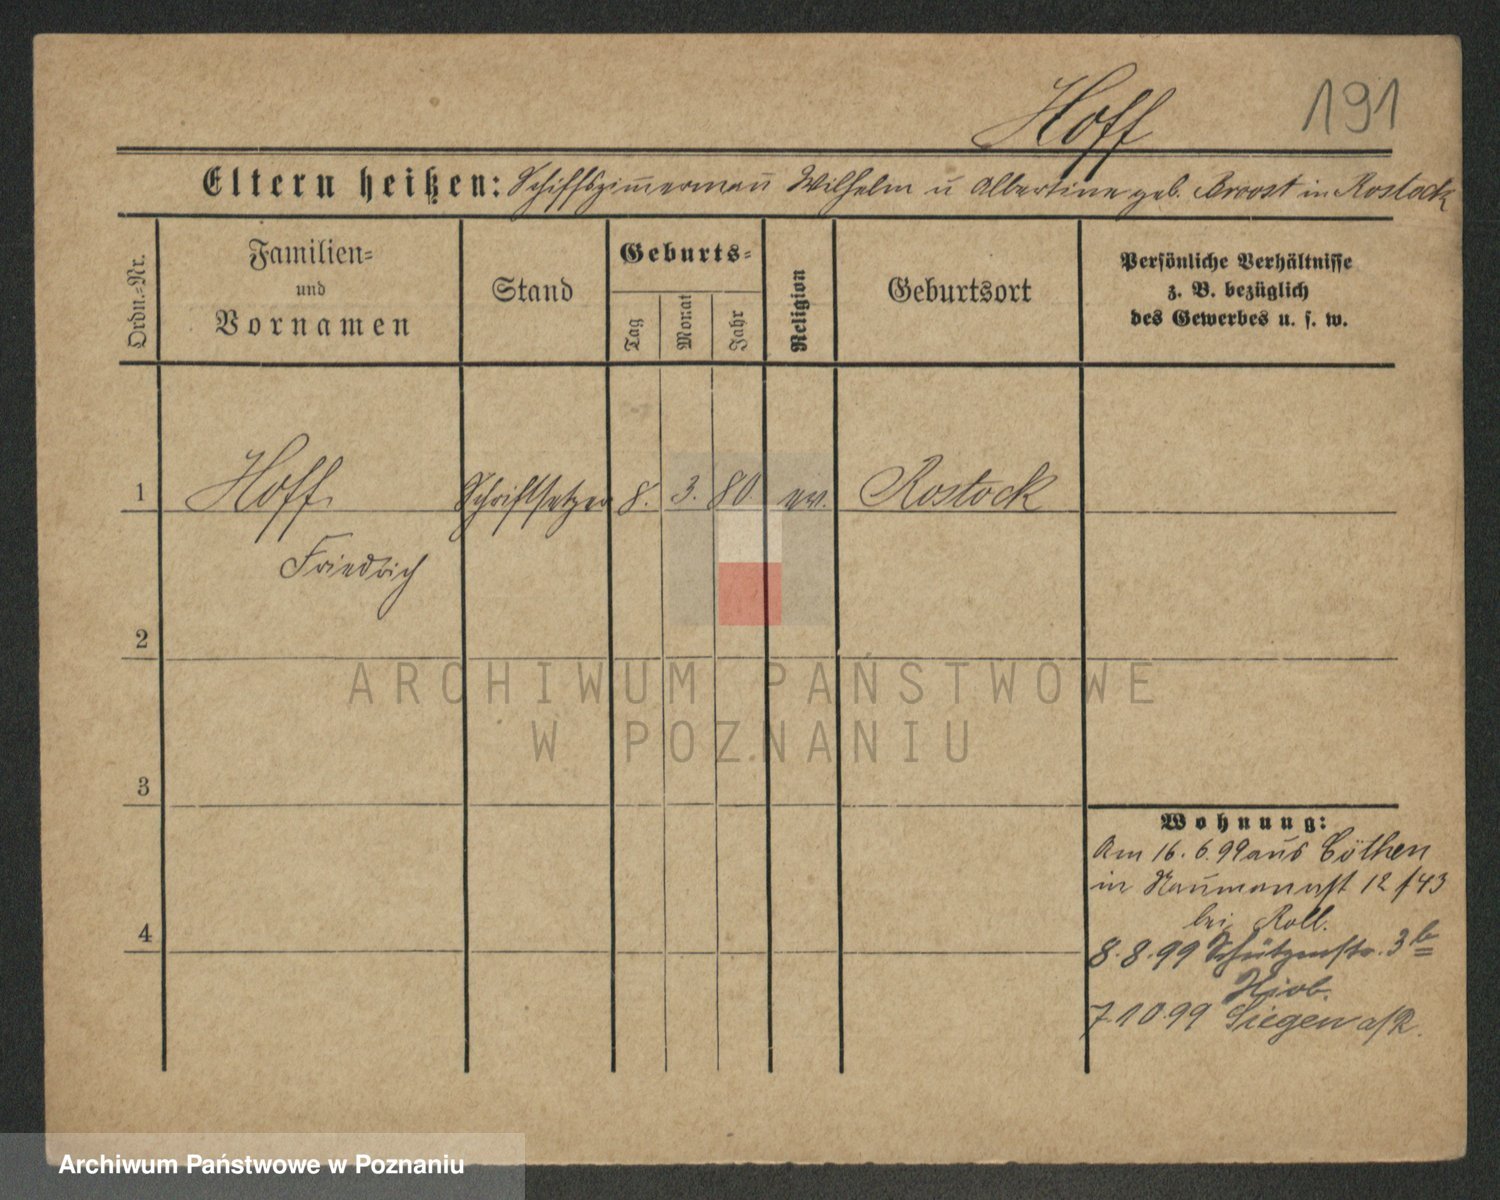 Hoff 191
Eltern heißen: Schiffszimermañ Wilhelm u Albertine geb. Broost in Rostock
Ordn.-Nr.
Familien-
und
Vornamen
Stand
Geburts-
Tag
Monat
Jahr
Religion
Geburtsort
Persönliche Verhältnisse
z. B. bezüglich
des Gewerbes u. s. w.
1 Hoff Schriftsetzer 8. 3. 80 ev. Rostock
Friedrich
2
3
4
Wohnung:
Am 16. 6. 99 aus Cöthen
in Naumannst 12 f 43
bei Roll.
8. 8. 99 Schützenstr. 3 b
Hiob.
7.10.99 Siegen a/R.
ARCHIWUM PAŃSTWOWE
W POZNANIU
Archiwum Państwowe w Poznaniu